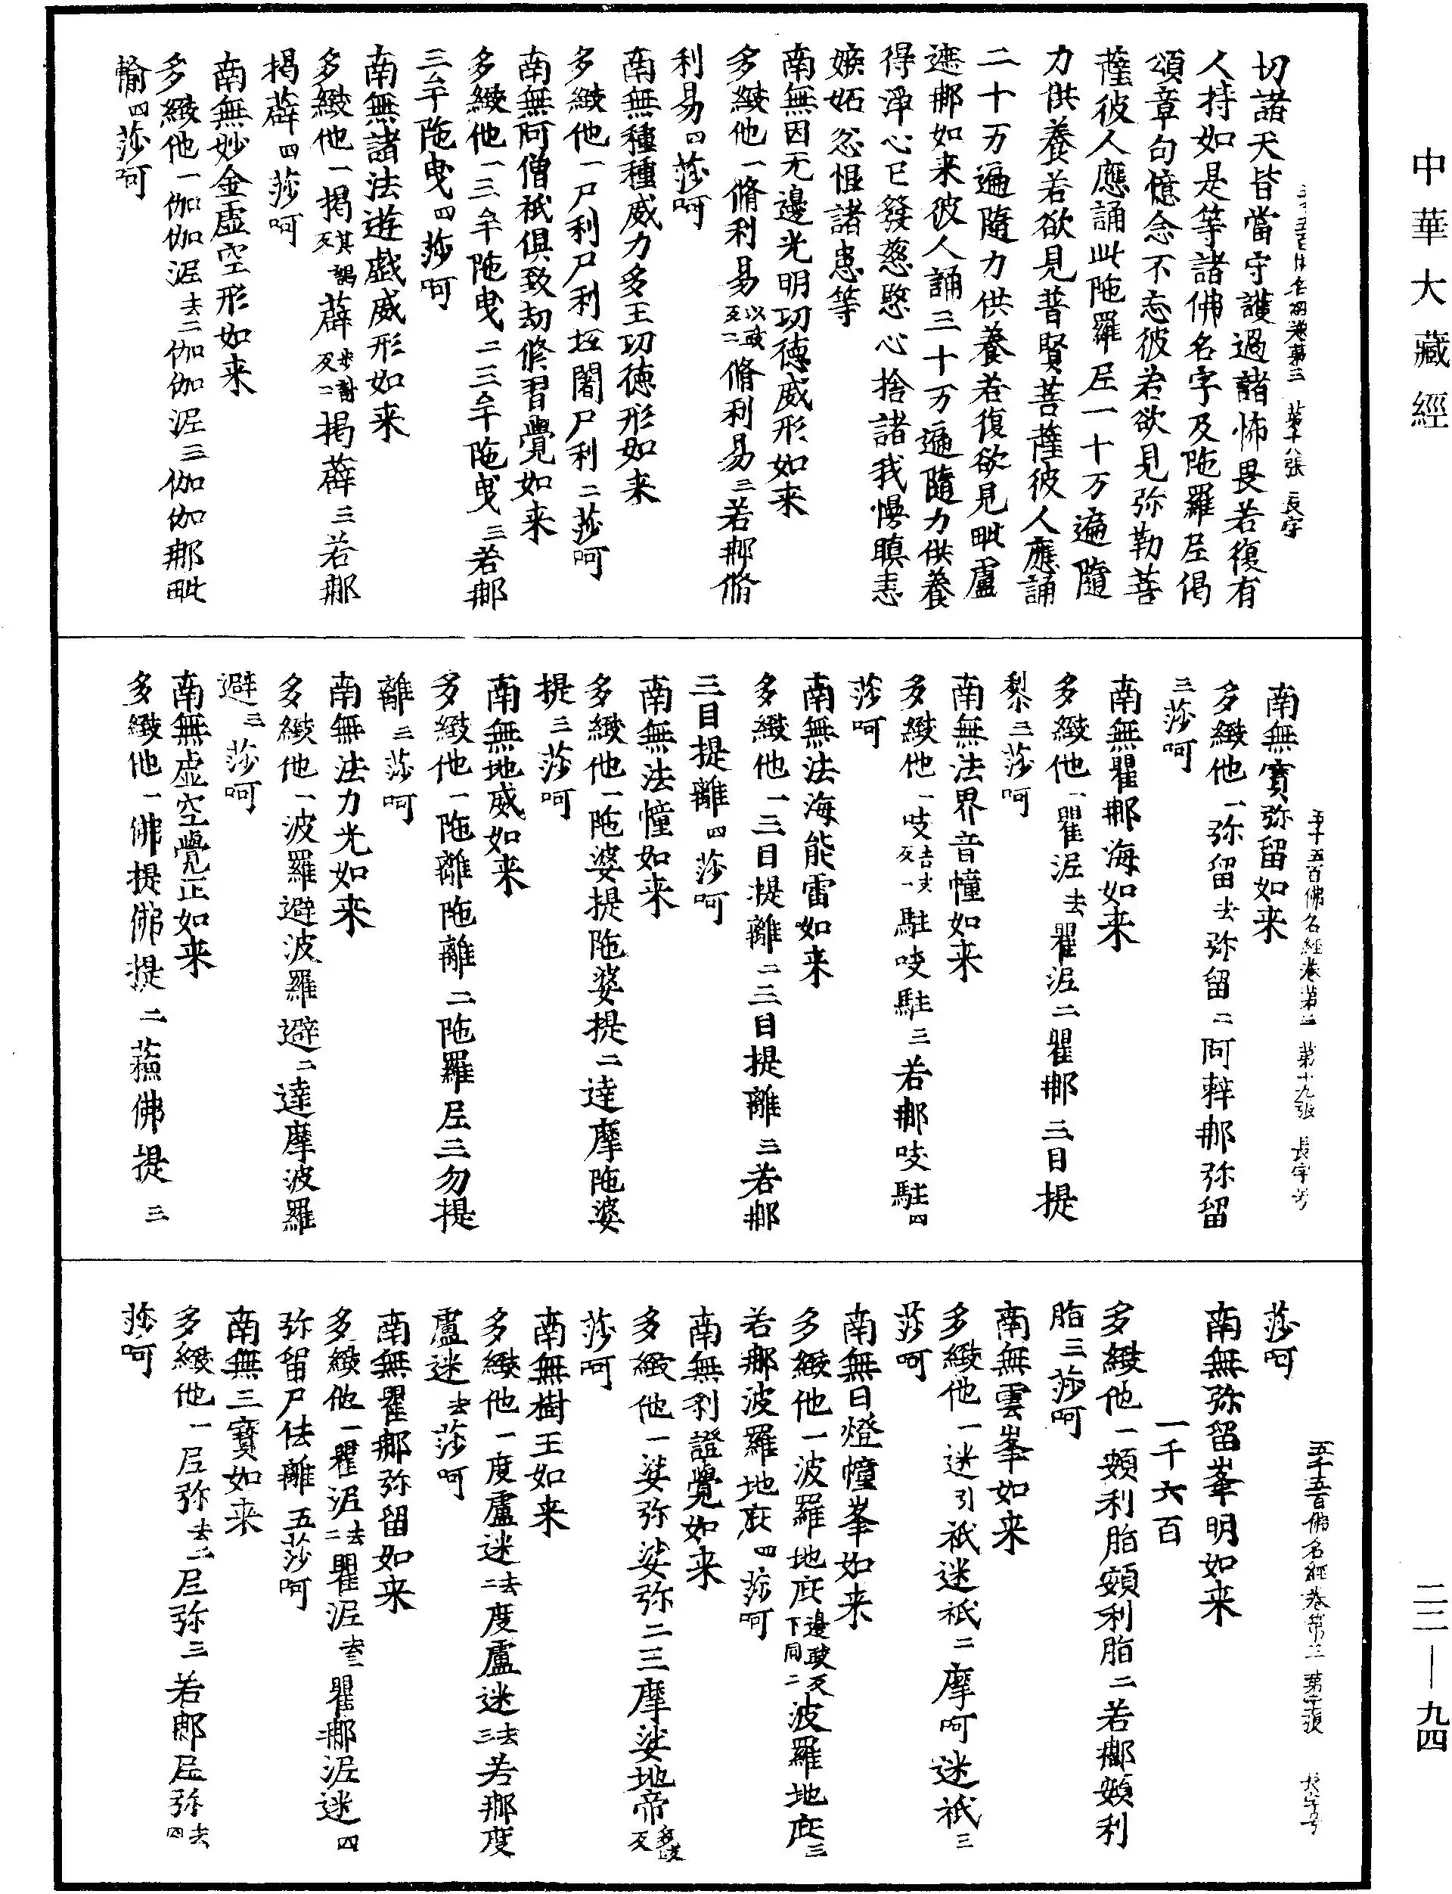 中華大藏經
二二—九四
五千五百佛名經卷第三 第十八張 長字
切諸天皆當守護過諸怖畏若復有
人持如是等諸佛名字及陁羅尼偈
頌章句憶念不忘彼若欲見弥勒菩
薩彼人應誦此陁羅尼一十万遍隨
力供養若欲見普賢菩薩彼人應誦
二十万遍隨力供養若復欲見毗盧
遮那如来彼人誦三十万遍隨力供養
得淨心已發慈愍心捨諸我慢瞋恚
嫉妬忿恨諸患等
南無因无邊光明功德威形如来
多緻他一脩利易以豉反二脩利易三若那脩
利易四莎呵
南無種種威力多王功德形如来
多緻他一尸利尸利垭闍尸利二莎呵
南無阿僧祇俱致劫修習覺如来
多緻他一三牟陁曳二三牟陁曳三若那
三牟陁曳四莎呵
南無諸法遊戲威形如来
多緻他一揭其謁反薜步計反二揭薜三若那
揭薜四莎呵
南無妙金虛空形如来
多緻他一伽伽泥去二伽伽泥三伽伽那毗
輸四莎呵
五千五百佛名經卷第三 第十九張 長字号
南無寶弥留如来
多緻他一弥留去弥留二阿䩭那弥留
三莎呵
南無瞿那海如来
多緻他一瞿泥去瞿泥二瞿那三目提
梨三莎呵
南無法界音幢如来
多緻他一吱吉支反一駐吱駐三若那吱駐四
莎呵
南無法海能雷如来
多緻他一三目提離二三目提離三若那
三目提離四莎呵
南無法幢如来
多緻他一陁婆提陁婆提二達摩陁婆
提三莎呵
南無地威如来
多緻他一陁離陁離二陁羅尼三勿提
離三莎呵
南無法力光如来
多緻他一波羅避波羅避二達摩波羅
避三莎呵
南無虛空覺正如来
多緻他一佛提佛提二蘓佛提三
五千五百佛名經卷第三 第二十張 長字号
莎呵
南無弥留峯明如来
一千六百
多緻他一頗利脂頗利脂二若那頗利
脂三莎呵
南無雲峯如来
多緻他一迷引祇迷祇二摩呵迷祇三
莎呵
南無日燈幢峯如来
多緻他一波羅地庇邊豉反下同二波羅地庇三
若那波羅地庇四莎呵
南無刹證覺如来
多緻他一娑弥娑弥二三摩娑地帝多豉反
莎呵
南無樹王如来
多緻他一度盧迷去二度盧迷去三若那度
盧迷去莎呵
南無瞿那弥留如来
多緻他一瞿泥去二瞿泥去三瞿那泥迷四
弥留尸佉離五莎呵
南無三寶如来
多緻他一尼弥去二尼弥三若那尼弥去四
莎呵